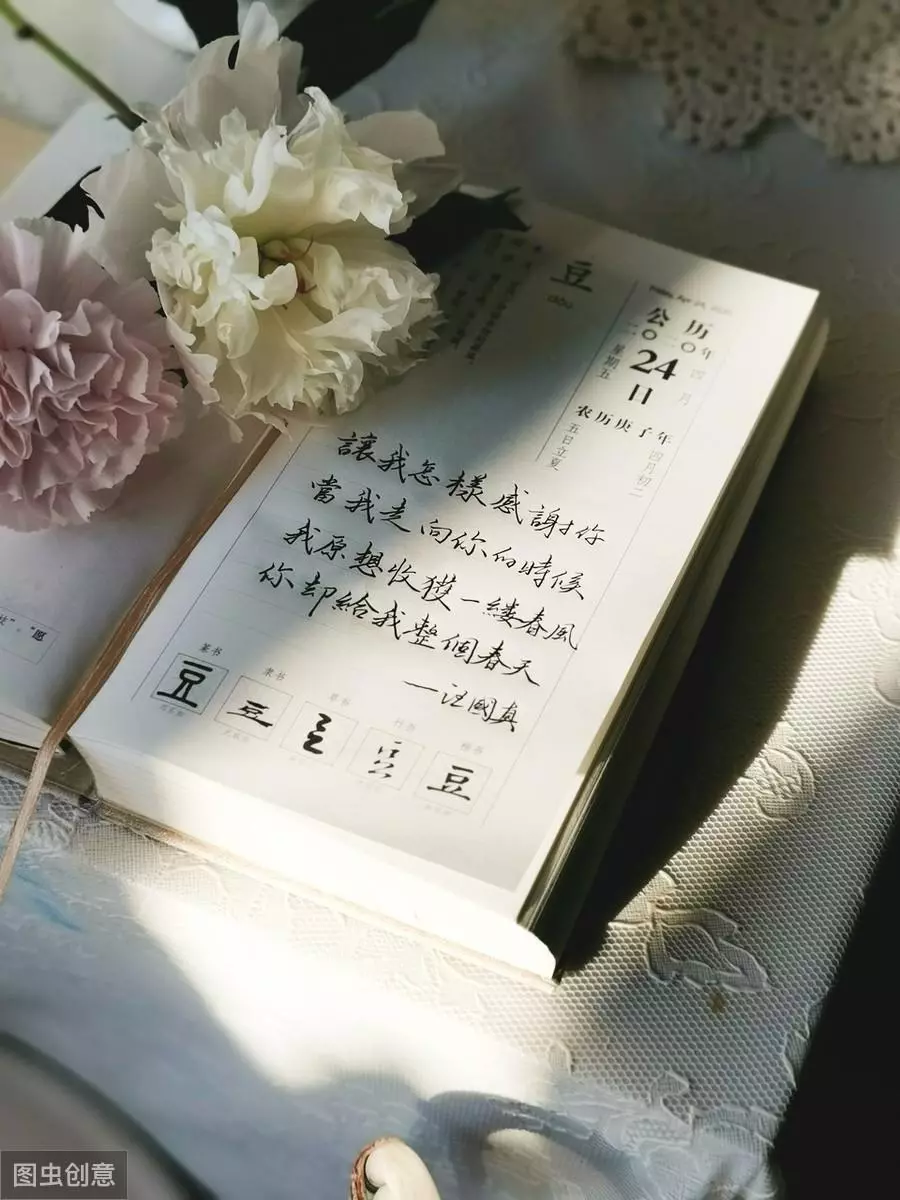 豆
dòu
公历
二〇二〇年
四月
24
日
星期五
农历庚子年
四月初二
五日立夏
讓我怎樣感謝你
當我走向你的時候
我原想收獲一縷春風
你却給我整個春天
—汪國真
篆书
隶书
草书
行书
楷书
豆
豆
豆
豆
豆
"愿
图虫创意